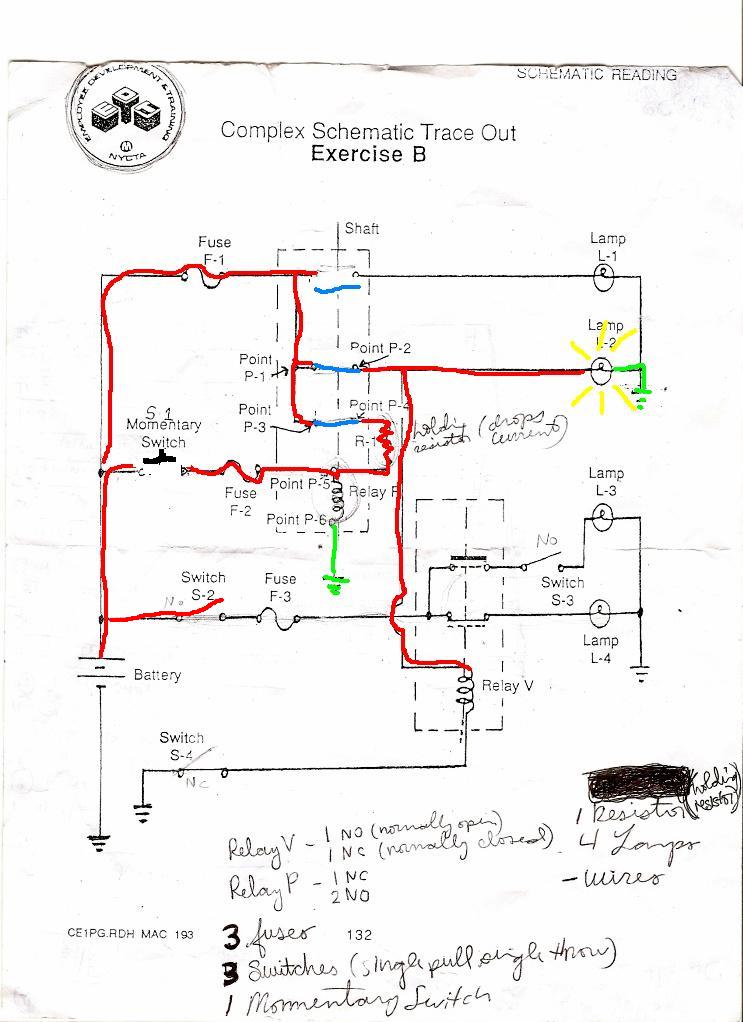 SCHEMATIC READING
EMPLOYEE DEVELOPMENT & TRAINING
E D C
M
NYCTA
Complex Schematic Trace Out
Exercise B
Shaft
Fuse
F-1
Lamp
L-1
Lamp
L-2
Point
P-1
Point P-2
Point
P-3
Point P-4
R-1
holding (drops
resistor current)
S1
Momentary
Switch
Fuse
F-2
Point P-5
Relay P
Point P-6
Lamp
L-3
NO
Switch
S-3
Switch
S-2
N.
Fuse
F-3
Lamp
L-4
Battery
Relay V
Switch
S-4
NC
(holding
resistor)
1 Resistor
4 Lamps
- wires
Relay V - 1 NO (normally open)
1 NC (normally closed)
Relay P - 1 NC
2 NO
CE1PG.RDH MAC 193
132
3 fuses
3 Switches (single pull single throw)
1 Mommentary Switch